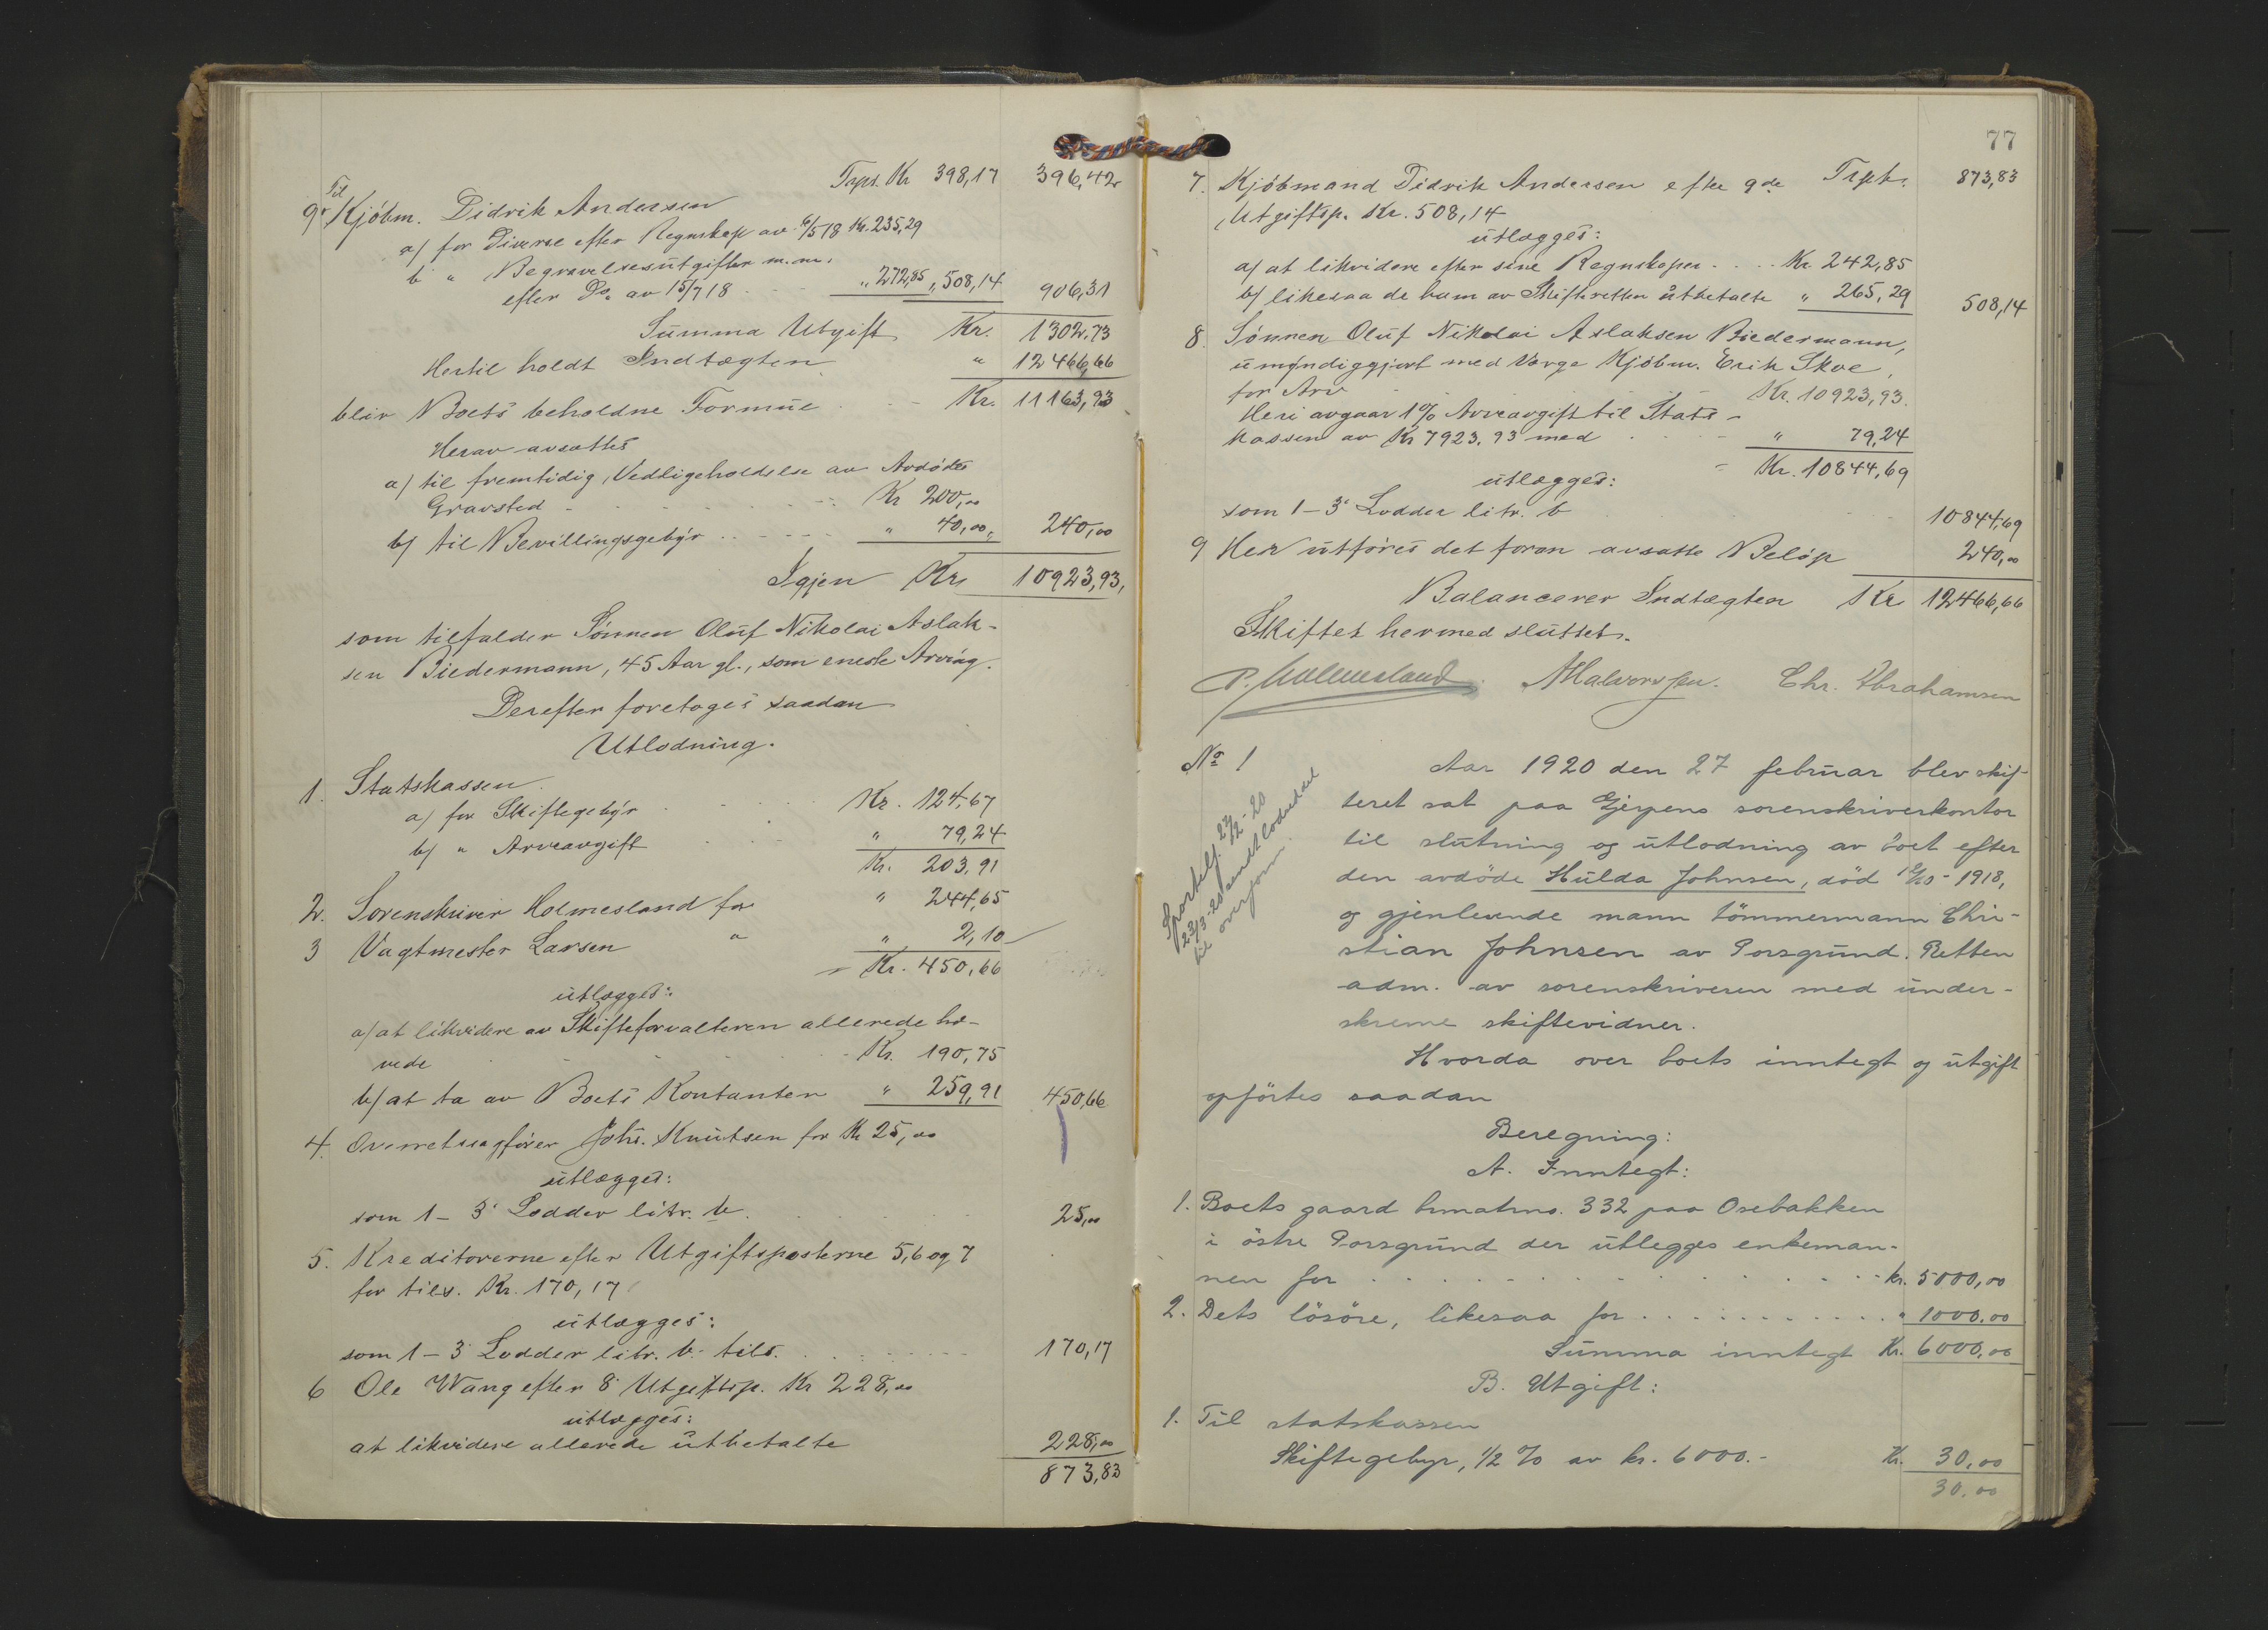 Trsp. Kr 398,17 396,42
9. Til Kjöbm. Didrik Andersen
a/ for Diverse efter Regnskap av 6/5 18 Kr. 235,29
b " Begravelsesutgifter m. m.
efter Do. av 15/7 18 " 272,85 " 508,14 906,31
Summa Utgift Kr. 1302,73
Hertil holdt Indtægten " 12466,66
blir Boets beholdne Formue Kr. 11163,93
Herav avsattes
a/ til fremtidig Vedligeholdelse av Avdödes
Gravsted Kr 200,00
b/ til Bevillingsgebyr " 40,00 240,00
Igjen Kr. 10923,93
som tilfalder Sönnen Oluf Nikolai Aslak-
sen Biedermann, 45 Aar gl., som eneste Arving.
Derefter foretoges saadan
Utlodning.
1. Statskassen
a/ for Skiftegebyr Kr. 124,67
b/ " Arveavgift " 79,24
Kr. 203,91
2. Sorenskriver Holmesland for " 244,65
3 Vagtmester Larsen " " 2,10
Kr. 450,66
utlægges:
a/ at likvidere av Skifteforvalteren allerede hæ-
vede Kr. 190,75
b/ at ta av Boets Kontanter " 259,91 450,66
4. Overretssagförer Johs. Knutsen for Kr 25,00
utlægges:
som 1-3 Lodder litr. b. 25,00
5. Kreditorerne efter Utgiftsposterne 5,6 og 7
for tils. Kr. 170,17
utlægges:
som 1-3 Lodder litr. b. tils. 170,17
6 Ole Wang efter 8 Utgiftsp. Kr 228,00
utlægges:
at likvidere allerede utbetalte 228,00
873,83
77
7. Kjöbmand Didrik Andersen efter 9de Trpt. 873,83
Utgiftsp. Kr. 508,14
utlægges:
a/ at likvidere efter sine Regnskaper Kr. 242,85
b/ likesaa de ham av Skifteretten utbetalte " 265,29 508,14
8. Sönnen Oluf Nikolai Aslaksen Biedermann,
umyndiggjort med Værge Kjöbm. Erik Skoe,
for Arv Kr. 10923,93.
Heri avgaar 1% Arveavgift til Stats-
kassen av Kr 7923,93 med " 79,24
Kr. 10844,69
utlægges:
som 1-3 Lodder litr. b 10844,69
9 Her utföres det foran avsatte Belöp 240,00
Balancerer Indtægten Kr 12466,66
Skiftet hermed sluttet.
P. Holmesland. A Halvorsen. Chr. Abrahamsen
No 1
Sportelf. 27/2-20
22/3-20 sendt lodseddel
til overform.
Aar 1920 den 27 februar blev skif-
teret sat paa Gjerpens sorenskriverkontor
til slutning og utlodning av boet efter
den avdöde Hulda Johnsen, död 18/10-1918,
og gjenlevende mann tömmermann Chri-
stian Johnsen av Porsgrund. Retten
adm. av sorenskriveren med under-
skrevne skiftevidner.
Hvorda over boets inntegt og utgift
opförtes saadan
Beregning:
A. Inntegt:
1. Boets gaard bmatrno. 332 paa Osebakken
i östre Porsgrund der utlegges enkeman-
nen for kr. 5000,00
2. Dets lösöre, likesaa for " 1000.00
Summa inntegt Kr. 6000,00
B. Utgift:
1. Til statskassen
Skiftegebyr, 1/2 % av kr. 6000.- Kr. 30,00
30.00